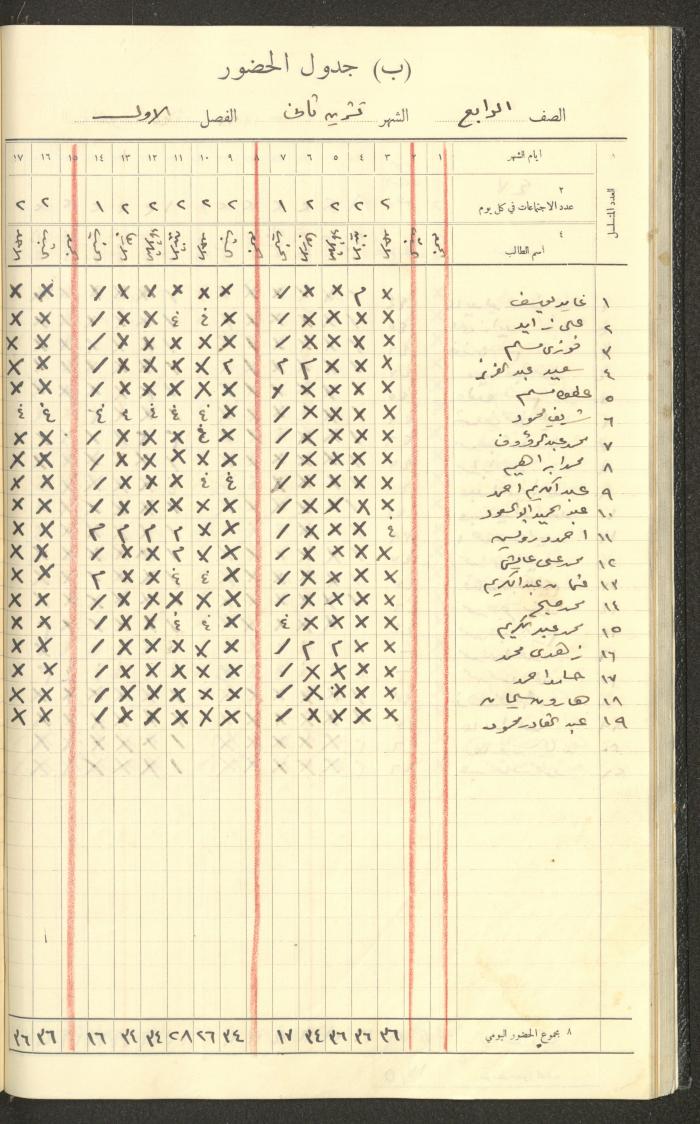 (ب) جدول الحضور
الصف الرابع الشهر تشرين ثاني الفصل الاول
١ ايام الشهر ١ ٢ ٣ ٤ ٥ ٦ ٧ ٨ ٩ ١٠ ١١ ١٢ ١٣ ١٤ ١٥ ١٦ ١٧
العدد المتسلسل
٢
عدد الاجتماعات في كل يوم ٢ ٢ ٢ ٢ ١ ٢ ٢ ٢ ٢ ٢ ١ ٢ ٢
٤
اسم الطالب الجمعة السبت الاحد الاثنين الثلاثاء الاربعاء الخميس الجمعة السبت الاحد الاثنين الثلاثاء الاربعاء الخميس الجمعة السبت الاحد
١ يوسف × م × × / × × × × × × / × ×
٢ علي زايد × × × × / × غ غ × × / × ×
٣ فوزي مسلم × × × × / × × × × × / × ×
٤ سعيد عبد العزيز × × × م م م × × × × / × ×
٥ عطوه مسلم × × × × × × × × × × / × ×
٦ شريف محمود × × × × / × غ غ غ غ غ غ غ
٧ محمد عبد الرؤوف × × × × / × غ × × × / × ×
٨ محمد ابراهيم × × × × / × × × × × / × ×
٩ عبد الكريم احمد × × × × / غ غ × × × / × ×
١٠ عبد الحميد ابو السعود × × × × / × × × × × / × ×
١١ احمد درويش غ × × × / × × م م م م × ×
١٢ محمد علي × × × × / × × م × × / × ×
١٣ عثمان عبد الكريم × × × × / × غ غ × × م × ×
١٤ محمد صبح × × × × / × × × × × / × ×
١٥ محمد عبد الكريم × × × × غ × غ غ × × / × ×
١٦ زهدي محمد × × م م / × × × × × / × ×
١٧ حامد احمد × × × × / × × × × × / × ×
١٨ هارون سليمان × × × × / × × × × × / × ×
١٩ عبد القادر محمود × × × × / × × × × × / × ×
٨ مجموع الحضور اليومي ٣٦ ٣٦ ٣٦ ٣٤ ١٧ ٣٤ ٢٦ ٢٨ ٣٤ ٣٤ ١٦ ٣٦ ٣٦